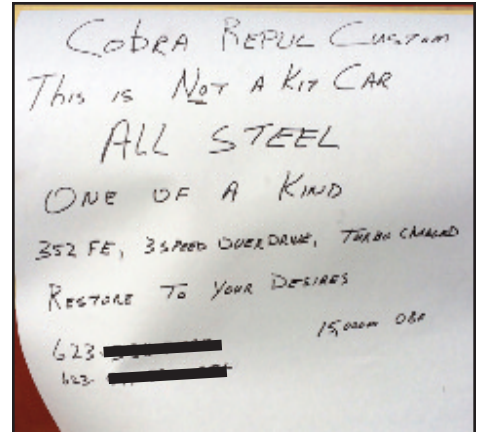 COBRA REPLIC CUSTOM
THIS IS NOT A KIT CAR
ALL STEEL
ONE OF A KIND
352 FE, 3 SPEED OVERDRIVE, TURBO CHARGED
RESTORE TO YOUR DESIRES
15,000 OBO
623-
623-